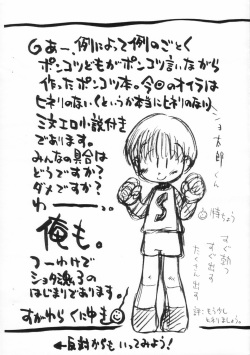 あー、例によって例のごとく
ポンコツどもがポンコツ言いながら
作ったポンコツ本。今回のオイラは
ヒネリのない、くというか本当にヒネリのない
ミ文エロ小説付き
であります。
みんなの具合は
どうですか?
ダメですか?
わーーー。。
俺も。
つーわけで
ショタ激子の
はじまりであります。
すがわらくにゆき
ショ太郎くん
特ちょう
すぐ勃つ
すぐ出す
たくさん出す
←反対からもいってみよう!